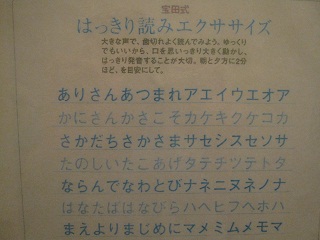 宝田式
はっきり読みエクササイズ
大きな声で、歯切れよく読んでみよう。ゆっくり
でもいいから、口を思いっきり大きく動かし、
はっきり発音することが大切。朝と夕方に2分
ほど、を目安にして。
ありさんあつまれアエイウエオア
かにさんかさこそカケキクケコカ
さかだちさかさまサセシスセソサ
たのしいたこあげタテチツテトタ
ならんでなわとびナネニヌネノナ
はなたばはなびらハヘヒフヘホハ
まえよりまじめにマメミムメモマ